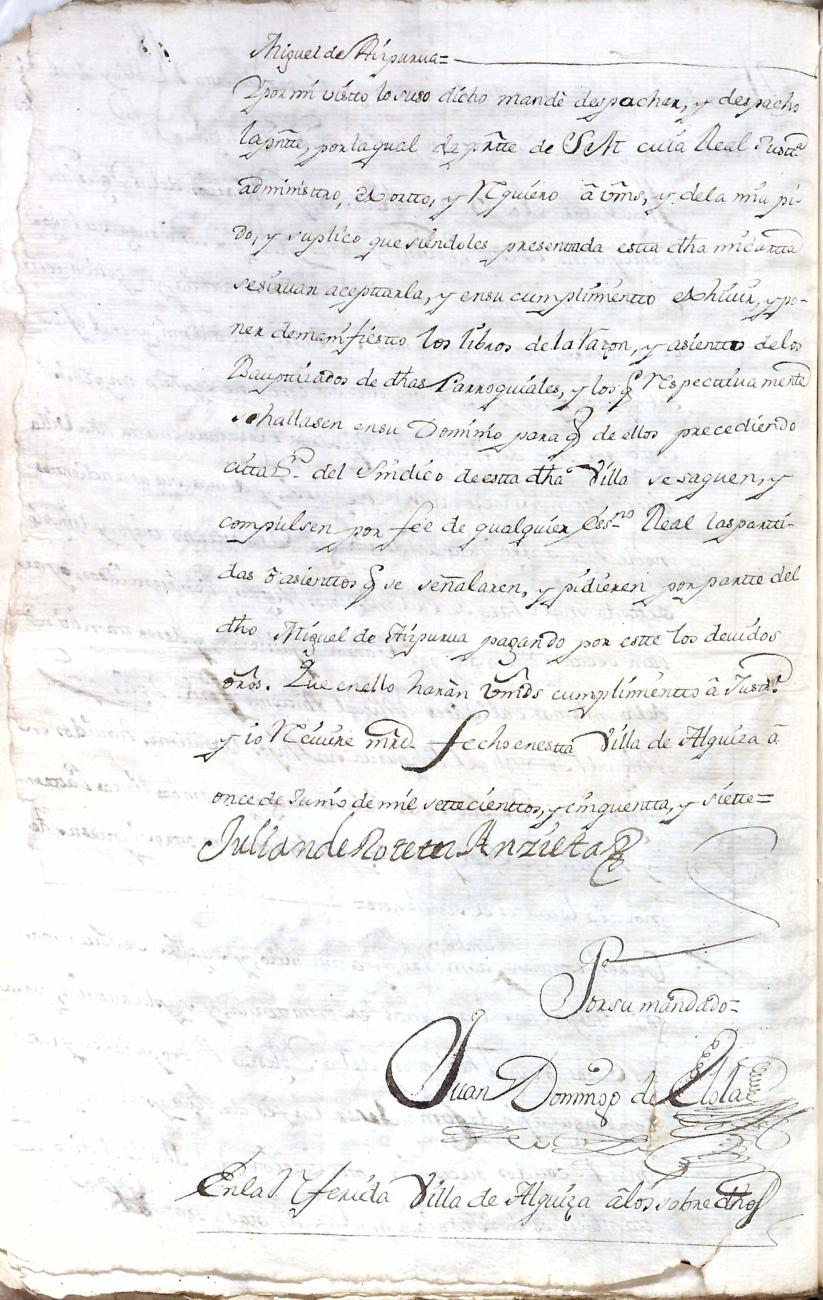 Miguel de Aizpurua=
Y por mi visto lo suso dicho mandè despachar, y despacho
la pñtte, por la qual de pârtte de S M cuia Real Justtª
administtro, exortto, y Requiero â vm̃s, y de la mia pi-
do, y suplico que siendoles presenttada estta dha mi cartta
se sirvan acepttarla, y en su cumplimientto exhivir, y po-
ner de manifiestto los libros de la razon, y asienttos de los
Bauptizados de dhas Parroquiales, y los q̃ Respectiva mentte
se hallasen en su Dominio para q̃ de ellos precediendo
citta on. del Sindico de estta dha Villa se saquen, y
compulsen por feè de qualquier Es.no Real las partti-
das ô asienttos q̃ se señalaren, y pidieren por partte del
dho Miguel de Aizpurua pagando por estte los devidos
dr̃os. Que en ello haràn Vmds cumplimientto â Justª.
y io Recivire mrd. fecho en estta Villa de Alquiza â
once de Junio de mil settecienttos, y cinquentta, y siette=
Julian de Roteta Anzieta
Por su mandado=
Juan Domingo de Elola
En la Referida Villa de Alquiza â los sobre dhos